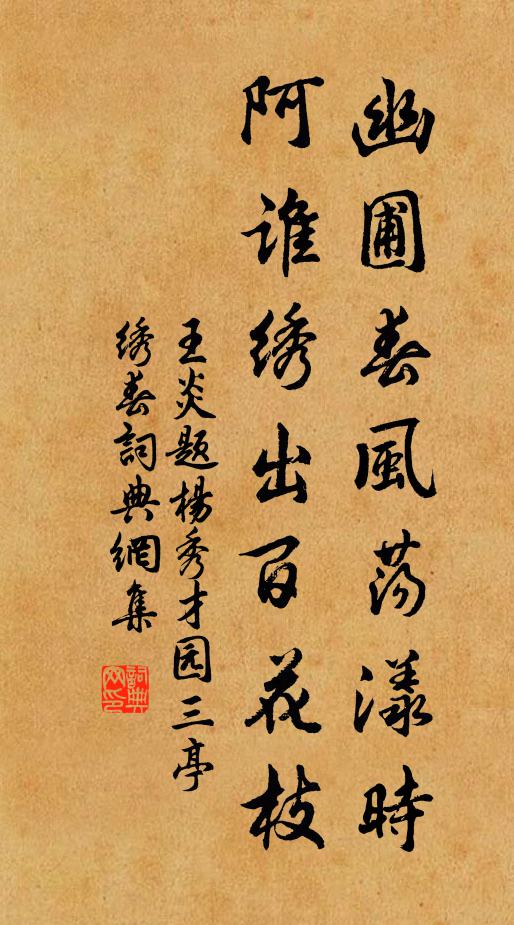 幽圃春風蕩漾時
阿誰绣出百花枝
王炎題楊秀才园三亭
绣春詞典網集
詞典網印